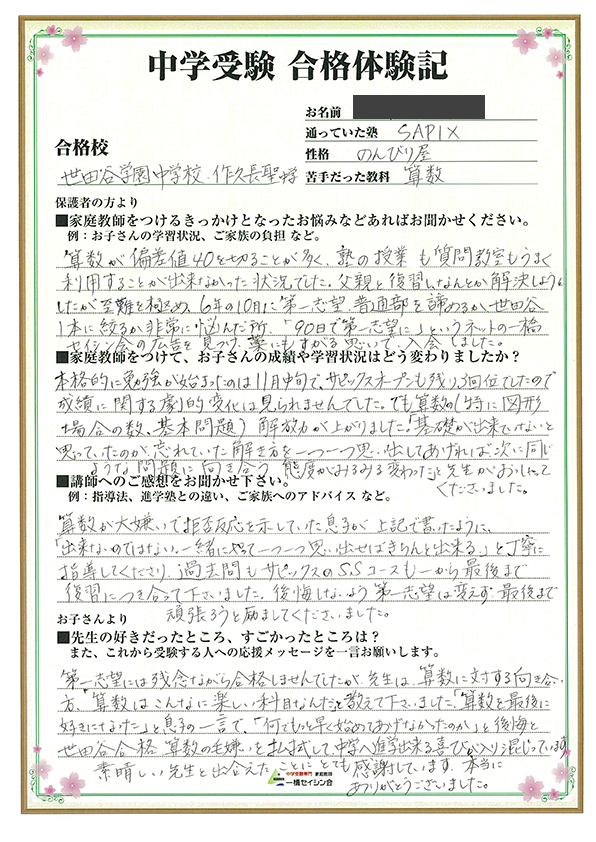 中学受験 合格体験記
お名前
通っていた塾 SAPIX
性格 のんびり屋
苦手だった教科 算数
合格校
世田谷学園中学校・佐久長聖中学
保護者の方より
■家庭教師をつけるきっかけとなったお悩みなどあればお聞かせください。
例：お子さんの学習状況、ご家族の負担 など。
算数が偏差値40を切ることが多く、塾の授業も質問教室もうまく
利用することが出来なかった状況でした。父親と復習しなんとか解決しようと
したが至難を極め、6年の10月に第一志望 普通部を諦めるか、世田谷
1本に絞るか非常に悩んだ所、「90日で第一志望に」というネットの一橋
セイシン会の広告を見つけ、藁にもすがる思いで、入会しました。
■家庭教師をつけて、お子さんの成績や学習状況はどう変わりましたか？
本格的に勉強が始まったのは11月中旬で、サピックスオープンも残り3回位でしたので
成績に関する劇的変化は見られませんでした。でも算数の(特に図形
場合の数、基本問題)解放力が上がりました。「基礎が出来ていないと
思っていたのが、忘れていた解き方を一つ一つ思い出してあげれば次に同じ
ような問題に向き合う態度がみるみる変わった」と先生がおっしゃって
くださいました。
■講師へのご感想をお聞かせ下さい。
例：指導法、進学塾との違い、ご家族へのアドバイス など。
算数が大嫌いで拒否反応を示していた息子が上記で書いたように、
「出来ないのではない。一緒にやって一つ一つ思い出せばきちんと出来る」と丁寧に
指導してくださり、過去問もサピックスのSSコースも一から最後まで
復習につき合って下さいました。後悔しないよう第一志望は変えず最後まで
頑張ろうと励ましてくださいました。
お子さんより
■先生の好きだったところ、すごかったところは？
また、これから受験する人への応援メッセージを一言お願いします。
第一志望には残念ながら合格しませんでしたが、先生は、算数に対する向き合い
方、「算数はこんなに楽しい科目なんだ」と教えて下さいました。「算数を最後に
好きになれた」と息子の一言で、「何でもっと早く始めてあげなかったのか」と後悔と
世田谷合格 算数の毛嫌いを払拭して、中学へ進学出来る喜びが入り混じっています。
素晴しい先生と出会えたことにとても感謝しています。本当に
ありがとうございました。
中学受験専門 家庭教師
一橋セイシン会